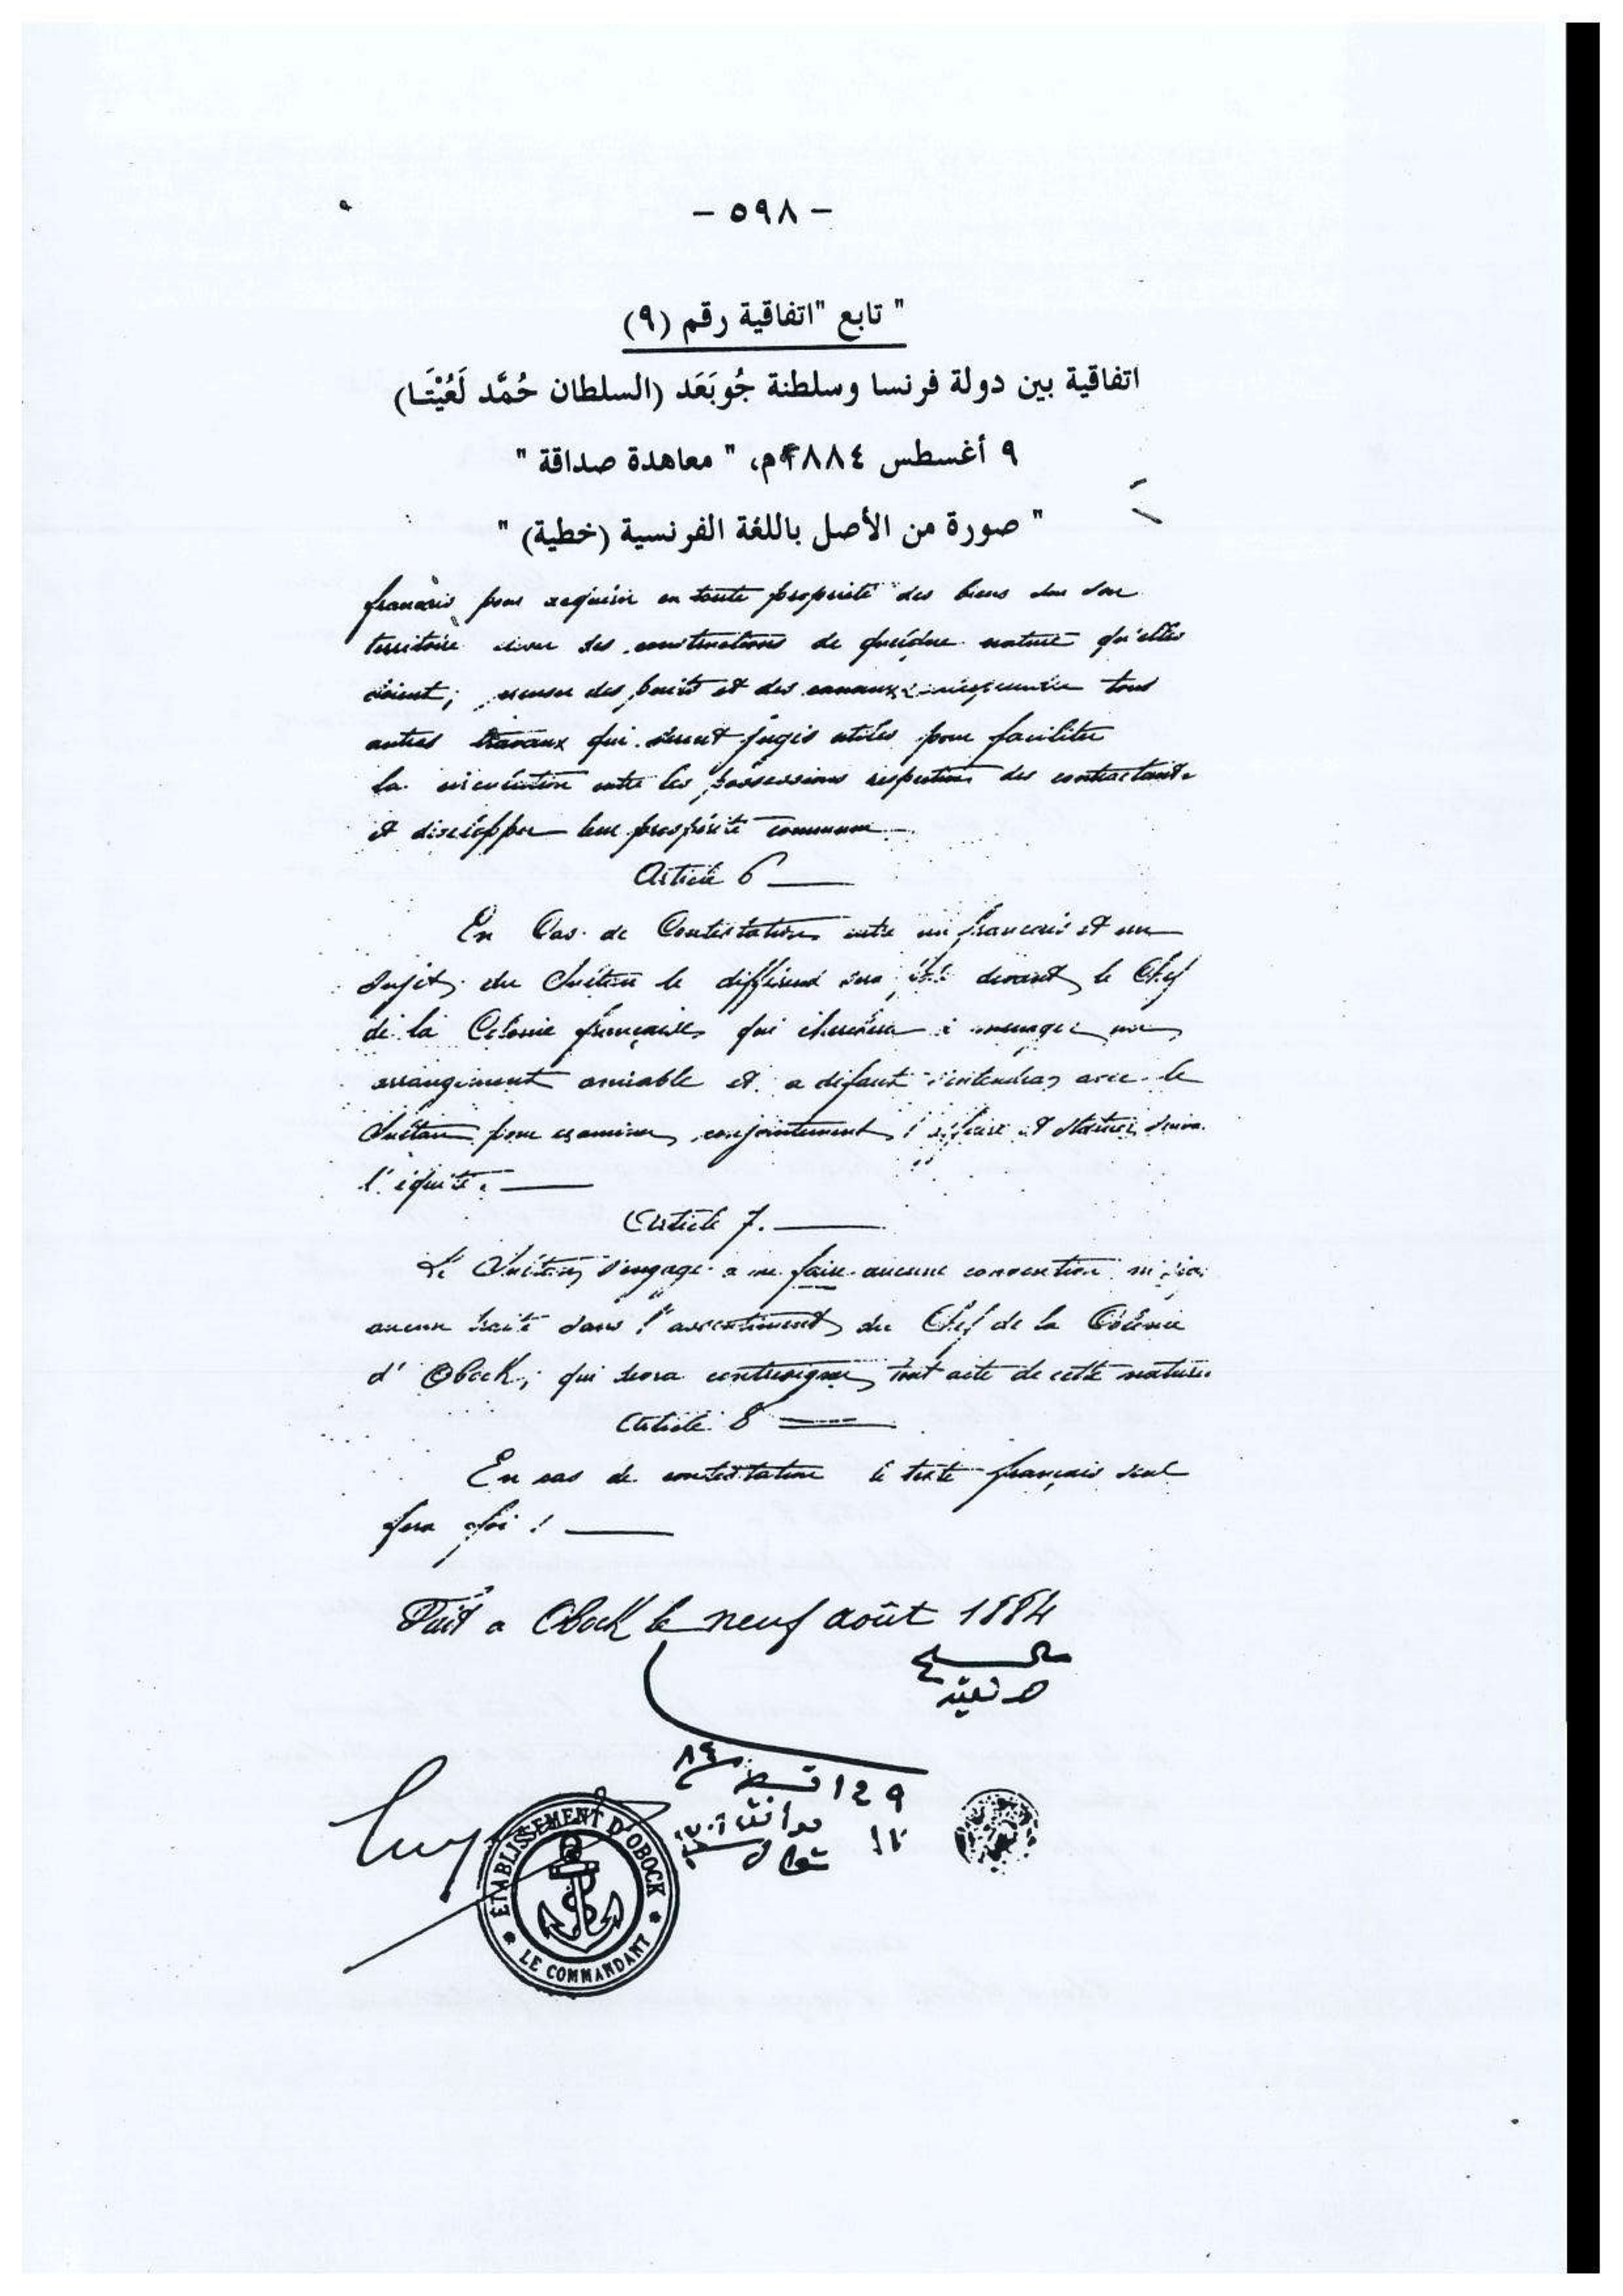 - ٥٩٨ -
" تابع "اتفاقية رقم (٩)
اتفاقية بين دولة فرنسا وسلطنة جُوبَعَد (السلطان حُمَّد لَعُيْتَا)
٩ أغسطس ١٨٨٤م، " معاهدة صداقة "
" صورة من الأصل باللغة الفرنسية (خطية) "
français pour acquérir en toute propriété des biens
territoire des constructions de quelque nature qu'elles
soient; creuser des puits et des canaux tous
autres travaux qui seront jugés utiles pour faciliter
la circulation entre les possessions respectives des contractants
et développer leur prospérité commune
Article 6
En Cas de Contestation entre un français et un
sujet du Sultan le différend sera devant le Chef
de la Colonie française qui cherchera à ménager un
arrangement amiable et a défaut s'entendra avec le
Sultan pour examiner conjointement l'affaire et statuer
l'équité.
Article 7.
Le Sultan s'engage a ne faire aucune convention ni
aucun traité sans l'assentiment du Chef de la Colonie
d'Obock, qui devra contresigner tout acte de cette nature.
Article 8
En cas de contestation le texte français seul
fera foi!
Fait a Obock le neuf août 1884
ÉTABLISSEMENT D'OBOCK
* LE COMMANDANT *